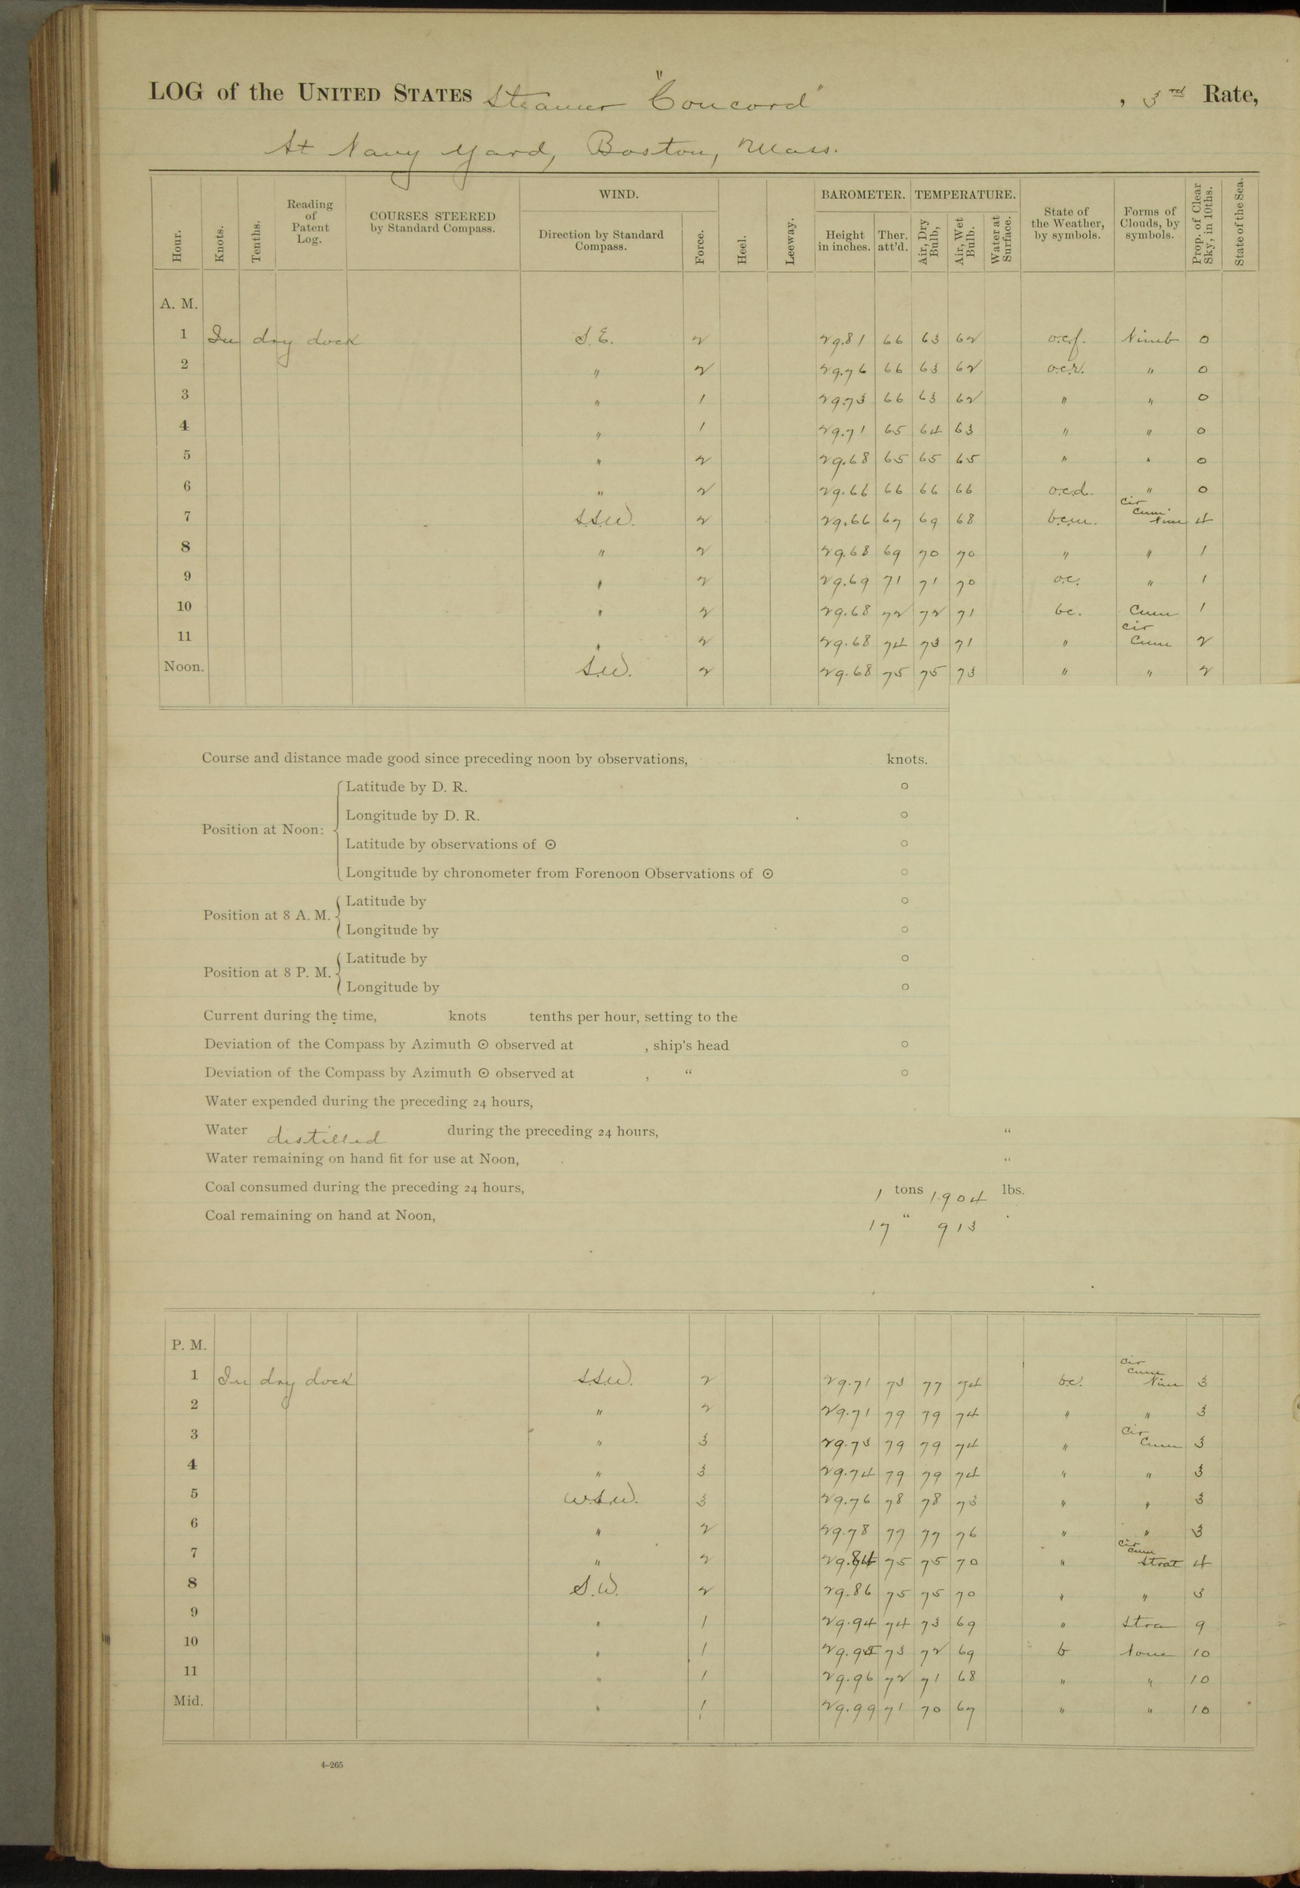 LOG of the UNITED STATES Steamer "Concord" , 3rd Rate,
At Navy Yard, Boston, Mass.
Hour. Knots. Tenths. Reading of Patent Log. COURSES STEERED by Standard Compass. WIND. Direction by Standard Compass. Force. Heel. Leeway. BAROMETER. Height in inches. Ther. att'd. TEMPERATURE. Air, Dry Bulb, Air, Wet Bulb. Water at Surface. State of the Weather, by symbols. Forms of Clouds, by symbols. Prop. of Clear Sky, in 10ths. State of the Sea.
A. M.
1 In dry dock S.E. 2 29.81 66 63 62 o.c.f. Nimb 0
2 " 2 29.76 66 63 62 o.c.r. " 0
3 " 1 29.73 66 63 62 " " 0
4 " 1 29.71 65 64 63 " " 0
5 " 2 29.68 65 65 65 " " 0
6 " 2 29.66 66 66 66 o.c.d. " 0
7 S.S.W. 2 29.66 67 69 68 b.c.m. Cir Cum Nim 4
8 " 2 29.68 69 70 70 " " 1
9 " 2 29.69 71 71 70 o.c. " 1
10 " 2 29.68 72 72 71 bc. Cum 1
11 " 2 29.68 74 73 71 " Cir Cum 2
Noon. S.W. 2 29.68 75 75 73 " " 2
Course and distance made good since preceding noon by observations, knots.
Position at Noon: Latitude by D. R. °
Longitude by D. R. °
Latitude by observations of ⊙ °
Longitude by chronometer from Forenoon Observations of ⊙ °
Position at 8 A. M. Latitude by °
Longitude by °
Position at 8 P. M. Latitude by °
Longitude by °
Current during the time, knots tenths per hour, setting to the
Deviation of the Compass by Azimuth ⊙ observed at , ship's head °
Deviation of the Compass by Azimuth ⊙ observed at , " °
Water expended during the preceding 24 hours,
Water distilled during the preceding 24 hours, "
Water remaining on hand fit for use at Noon, "
Coal consumed during the preceding 24 hours, 1 tons 1904 lbs.
Coal remaining on hand at Noon, 17 " 913 "
P. M.
1 In dry dock S.S.W. 2 29.71 73 77 74 bc. Cir Cum Nim 3
2 " 2 29.71 79 79 74 " " 3
3 " 3 29.73 79 79 74 " Cir Cum 3
4 " 3 29.74 79 79 74 " " 3
5 W.S.W. 3 29.76 78 78 73 " " 3
6 " 2 29.78 77 77 76 " " 3
7 " 2 29.84 75 75 70 " Cir Cum Strat 4
8 S.W. 2 29.86 75 75 70 " " 3
9 " 1 29.94 74 73 69 " Stra 9
10 " 1 73 72 69 b None 10
11 " 1 29.96 72 71 68 " " 10
Mid. " 1 29.99 71 70 67 " " 10
4–265